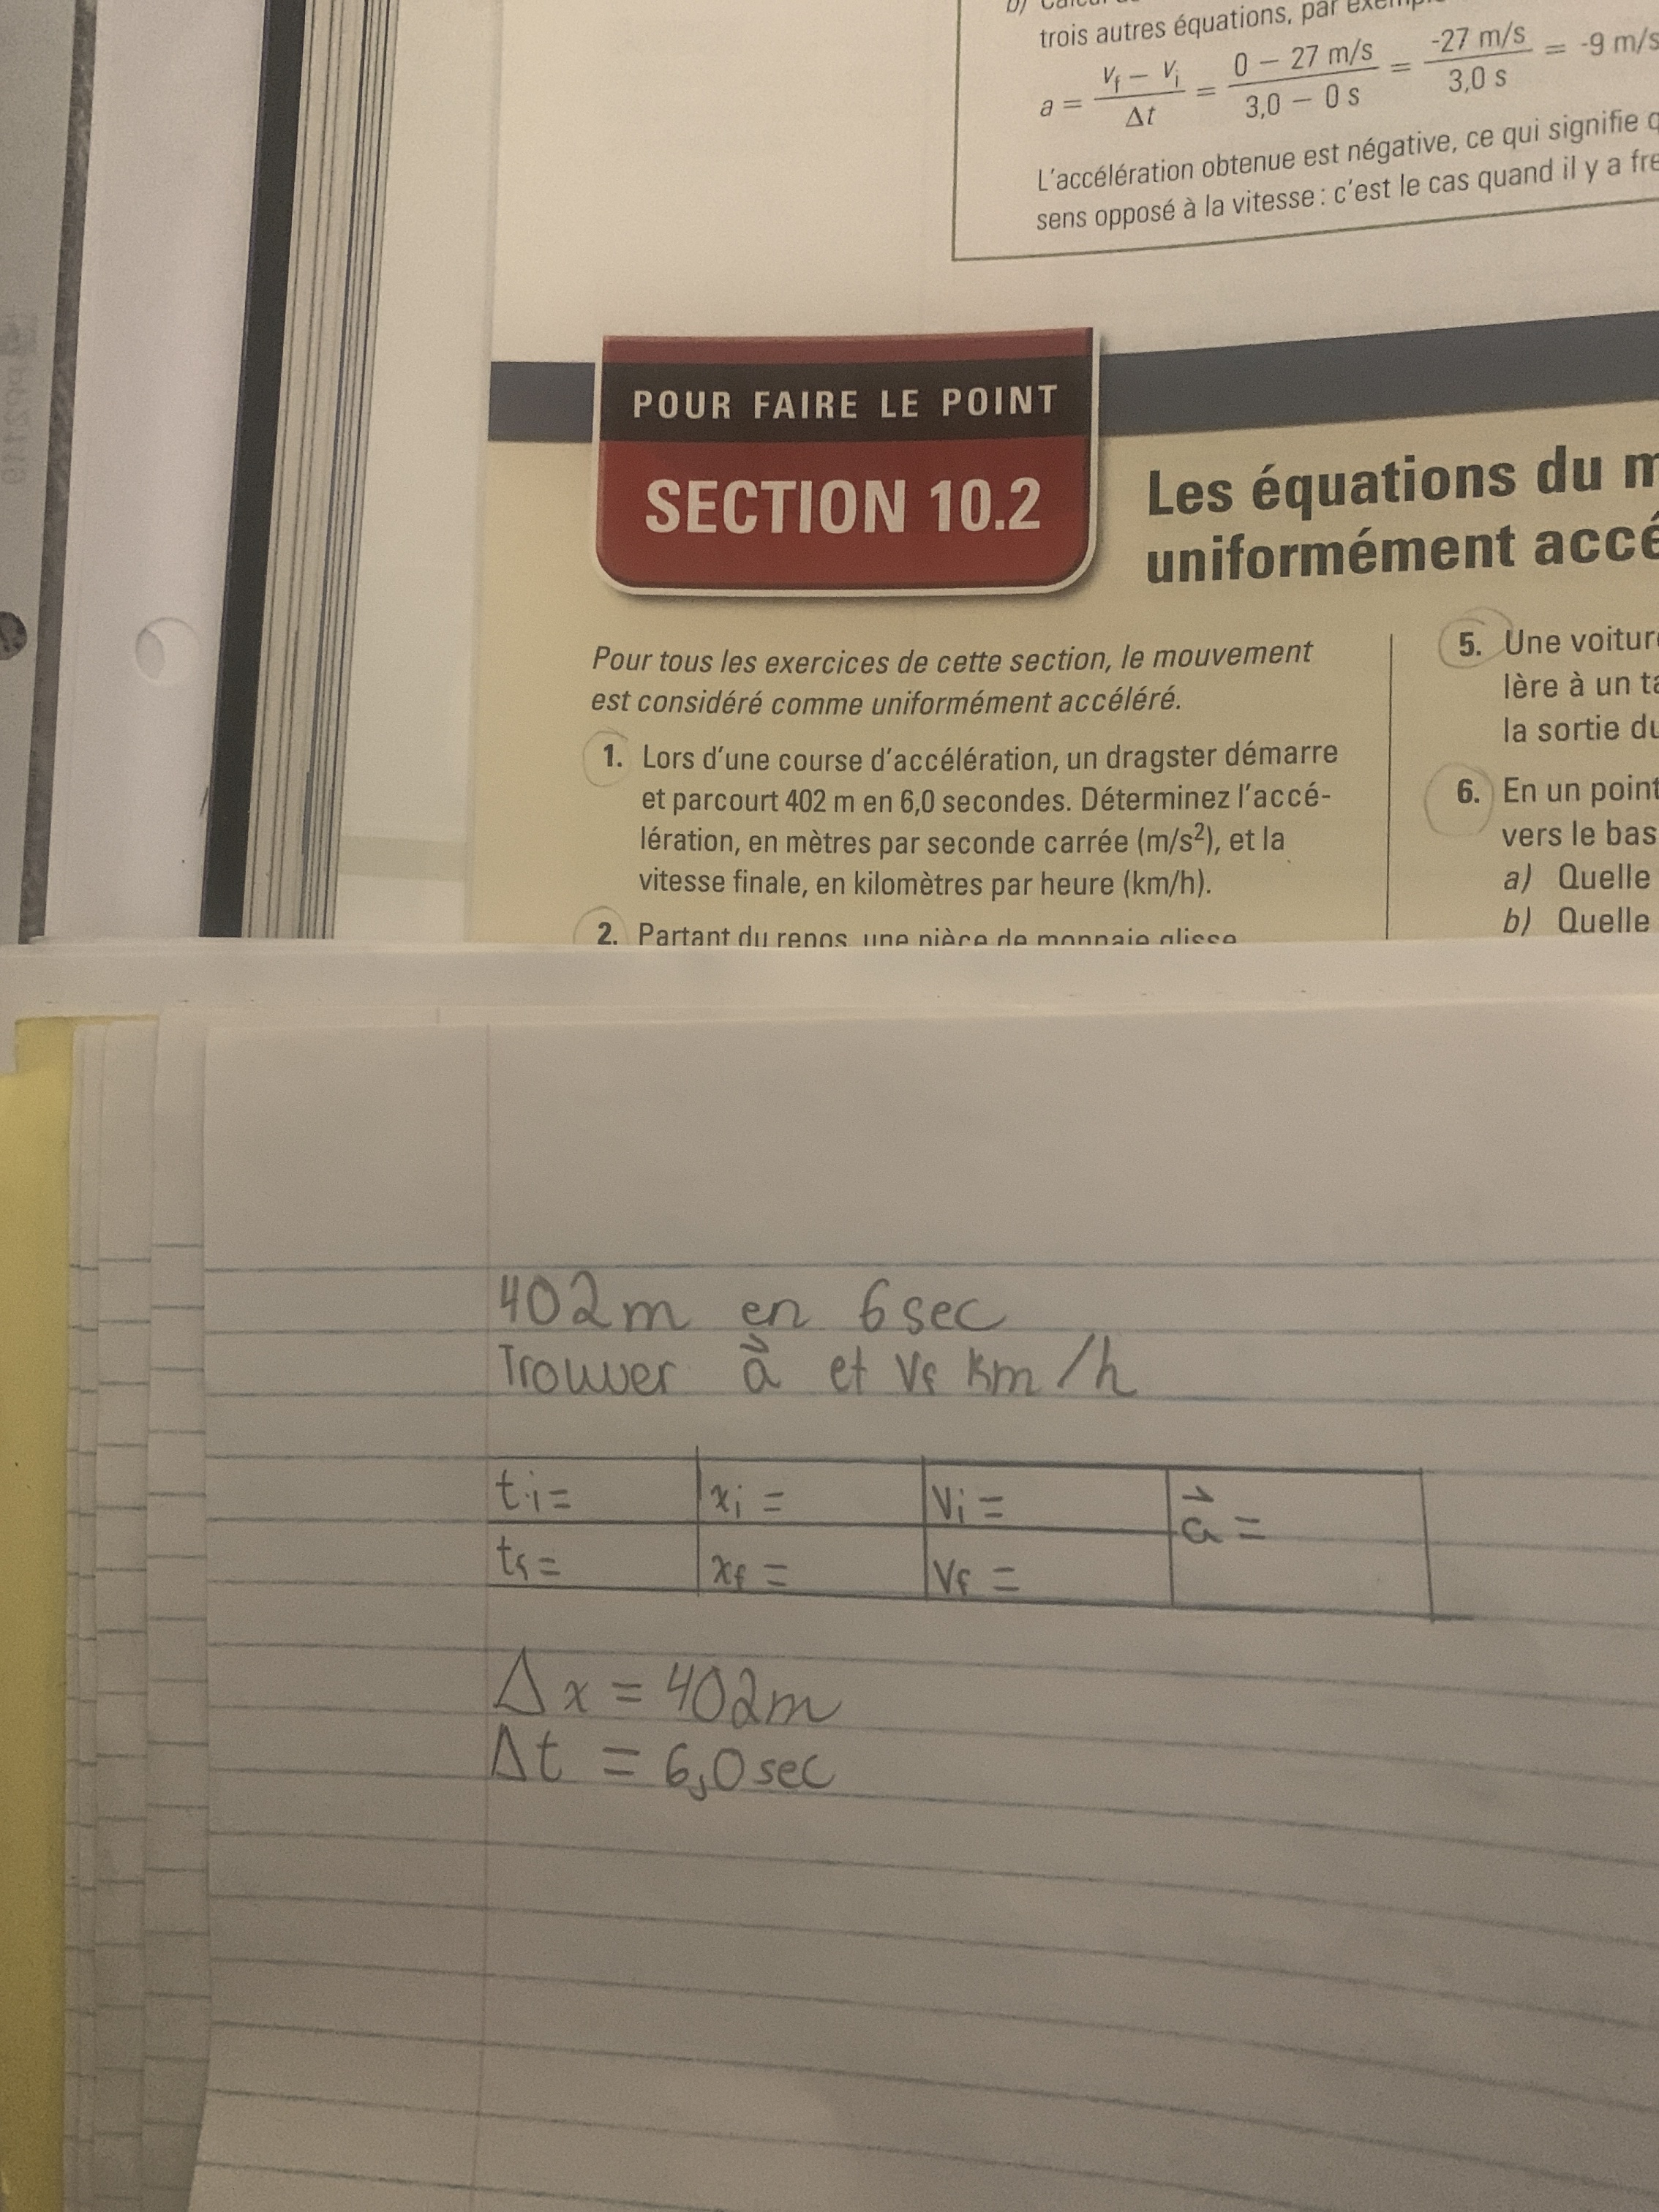 trois autres équations, par
a = (Vf − Vi)/Δt = (0 − 27 m/s)/(3,0 − 0 s) = (-27 m/s)/(3,0 s) = -9 m/s
L'accélération obtenue est négative, ce qui signifie q
sens opposé à la vitesse : c'est le cas quand il y a fre
POUR FAIRE LE POINT
SECTION 10.2
Les équations du m
uniformément accé
Pour tous les exercices de cette section, le mouvement
est considéré comme uniformément accéléré.
1. Lors d'une course d'accélération, un dragster démarre
et parcourt 402 m en 6,0 secondes. Déterminez l'accé-
lération, en mètres par seconde carrée (m/s²), et la
vitesse finale, en kilomètres par heure (km/h).
2. Partant du repos, une pièce de monnaie glisse
5. Une voiture
lère à un ta
la sortie du
6. En un point
vers le bas
a) Quelle
b) Quelle
402m en 6sec
Trouver a⃗ et Vf km/h
ti= xi = Vi = a⃗ =
tf= xf = Vf =
Δx = 402m
Δt = 6,0sec